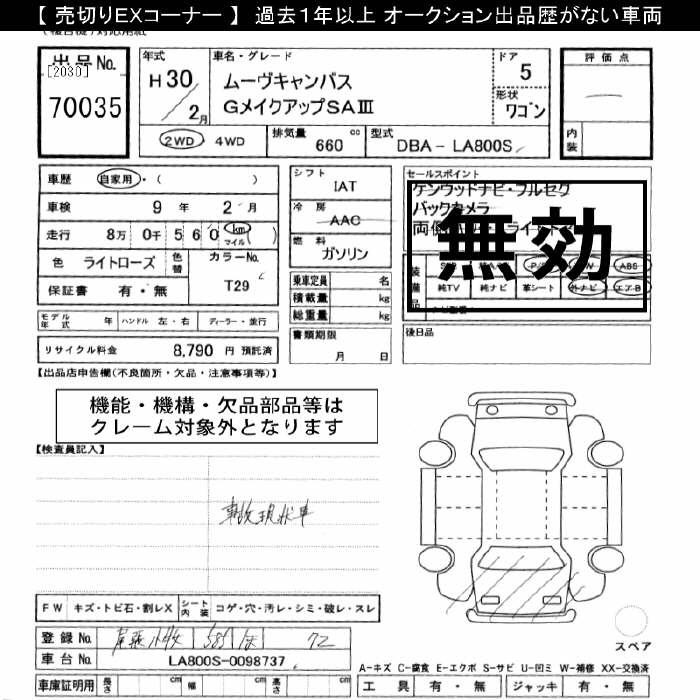 【 売切りEXコーナー 】 過去１年以上 オークション出品歴がない車両
出品No.
[2030]
70035
年式
H30
2月
車名・グレード
ムーヴキャンバス
GメイクアップSAⅢ
ドア
5
形状
ワゴン
2WD 4WD
排気量 660 cc
型式 DBA - LA800S
評価点
内装
車歴 自家用・( )
車検 9年 2月
走行 8万 0千 5 6 0 km マイル ( )
色 ライトローズ
色替
カラーNo.
T29
保証書 有・無
シフト
IAT
冷房
AAC
燃料
ガソリン
乗車定員 名
積載量 kg
総重量 kg
書類期限
月 日
セールスポイント
ケンウッドナビ・フルセグ
バックカメラ
無効
ABS
純TV 純ナビ 革シート 外ナビ エアB
後日品
モデル年式 年 ハンドル 左・右 ディーラー・並行
リサイクル料金 8,790 円 預託済
【出品店申告欄(不良箇所・欠品・注意事項等)】
機能・機構・欠品部品等は
クレーム対象外となります
【検査員記入】
事故現状車
FW キズ・トビ石・割レX
シート内装 コゲ・穴・汚レ・シミ・破レ・スレ
登録No. 尾張小牧 72
車台No. LA800S-0098737
車庫証明用 長さ cm 幅 cm 高さ cm
スペア
A-キズ C-腐食 E-エクボ S-サビ U-凹ミ W-補修 XX-交換済
工具 有・無 ジャッキ 有・無